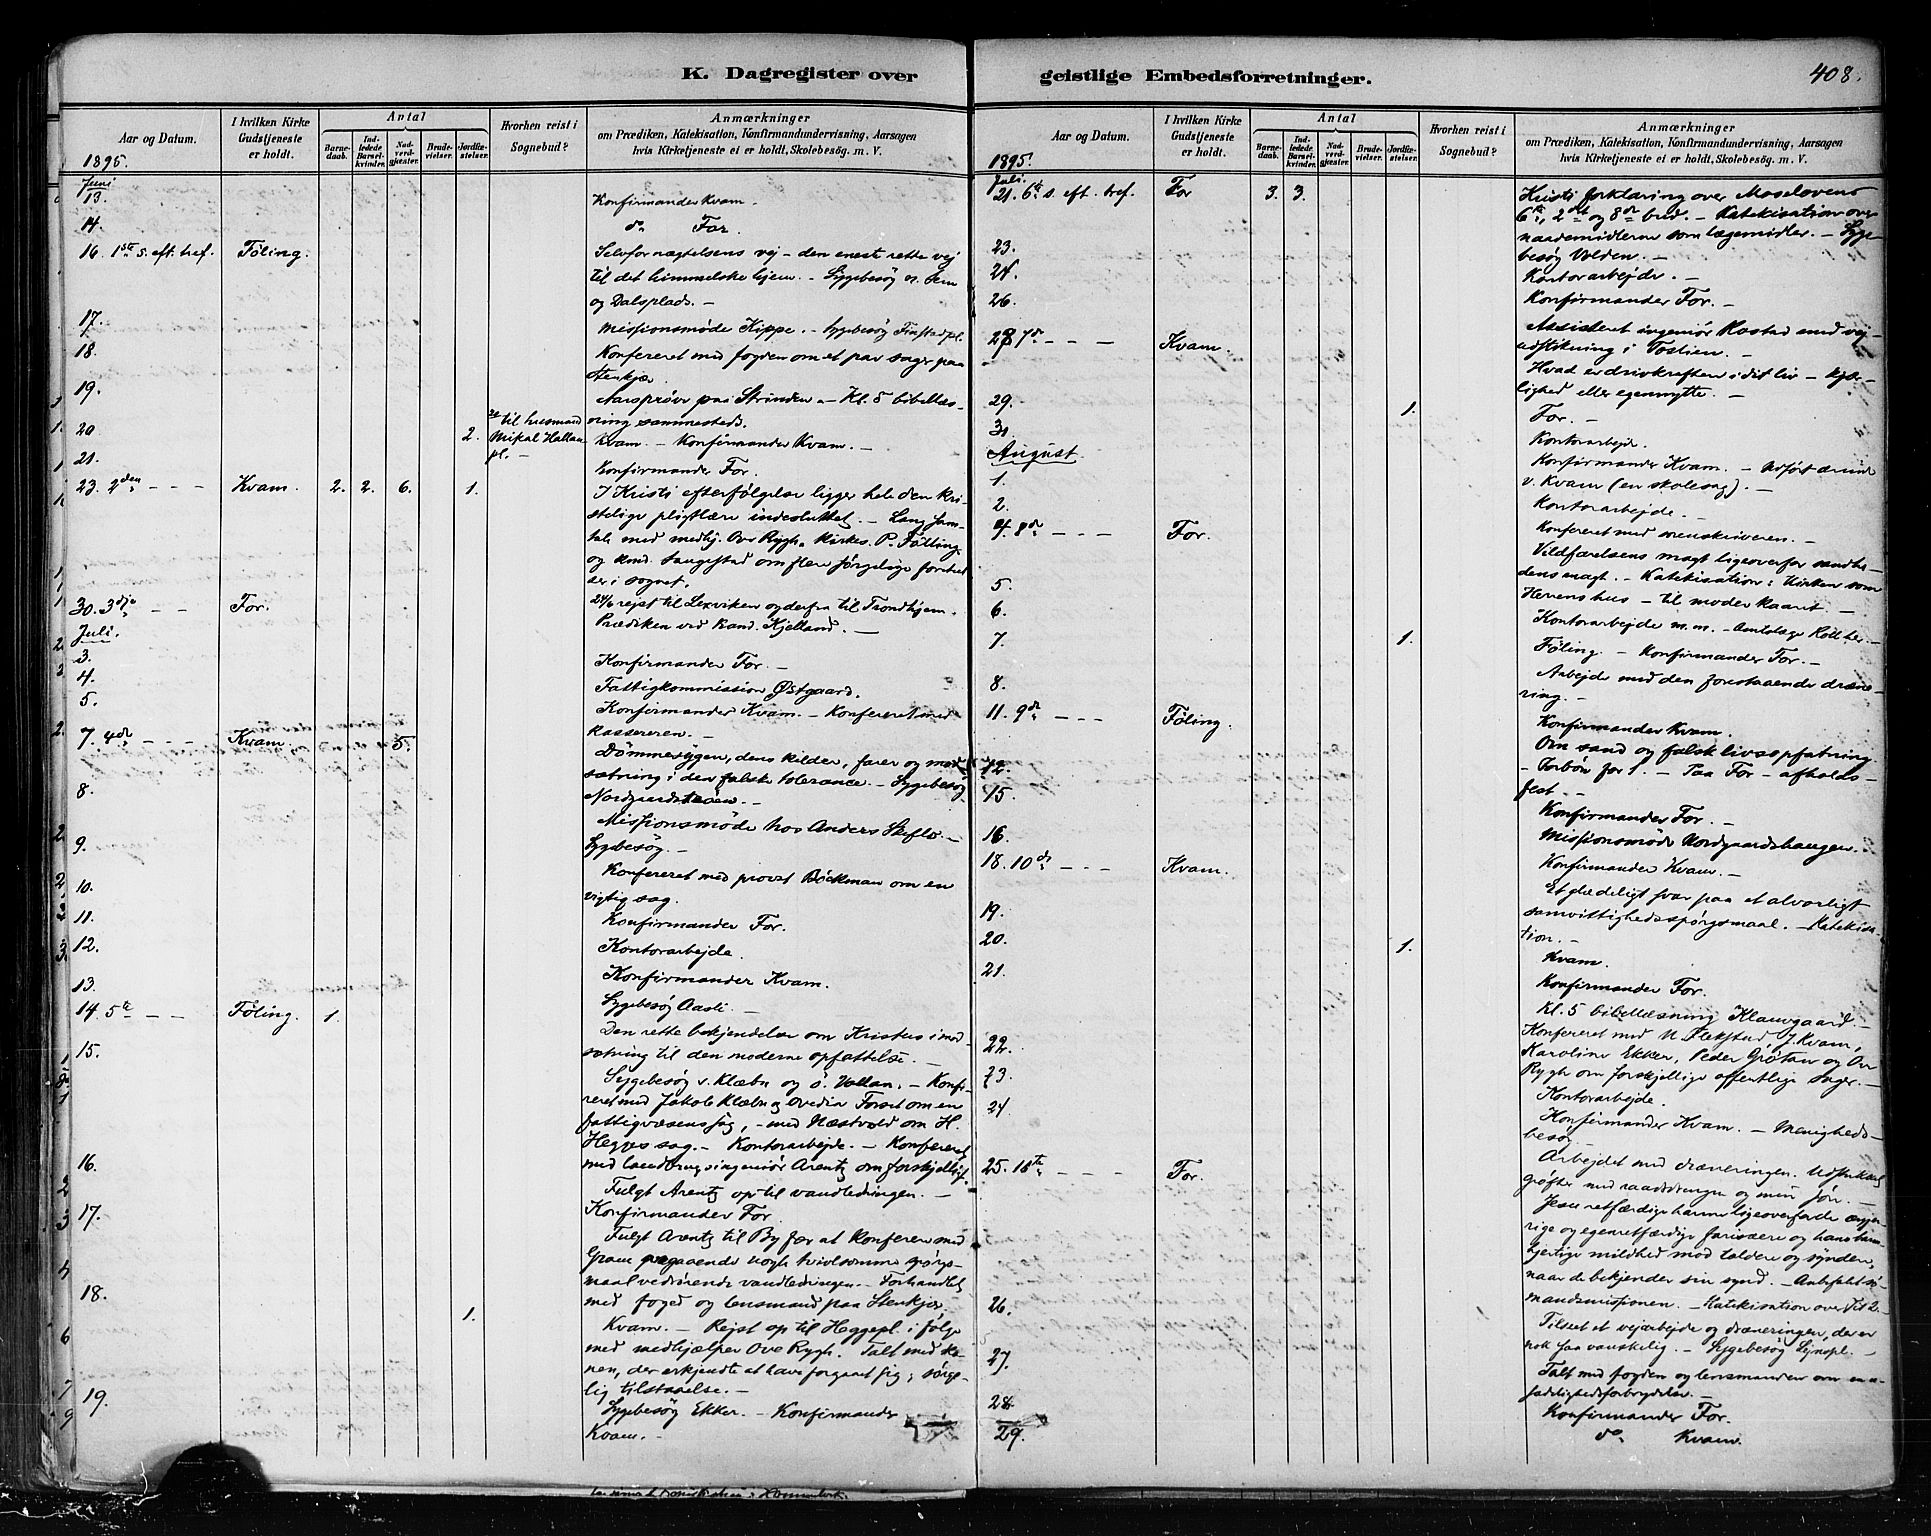 K. Dagregister over
Aar og Datum.
I hvilken Kirke Gudstjeneste er holdt.
Antal
Barnedaab.
Indledede Barselkvinder.
Nadverdgjester.
Brudevielser.
Jordfæstelser.
Hvorhen reist i Sognebud?
Anmærkninger
om Prædiken, Katekisation, Konfirmandundervisning, Aarsagen
hvis Kirketjeneste ei er holdt, Skolebesøg. m. V.
1895.
Juni
13. Konfirmander Kvam.
14. do For.
16. 1ste s. eft. tref. Føling. Selvfornægtelsens vej – den eneste rette vej
til det himmelske hjem. – Sygebesøg
og Dalsplads. –
17. Missionsmøde Kippe. – Sygebesøg Finstadpl.
18. Konfereret med fogden om et par sager paa
Stenkjær.
19. Aarsprøve paa Strinden – Kl. 5 bibellæs-
ning sammesteds.
20. 2. til husmand
Mikal Hallan-
pl. – Kvam. – Konfirmander Kvam. –
21. Konfirmander For.
23. 2den – – – Kvam. 2. 2. 6. 1. I Kristi efterfølgelse ligger hele den kri-
stelige pligtlære indesluttet. – Lang sam-
tale med medhj. Ove Rygh, kirkes. P. Følling
og kond. Saugestad om flere sørgelige forhol-
der i sognet.
30. 3dje – – For. 24/6 rejst til Lexviken og derfra til Trondhjem.
Prædiken ved kand. Kjelland. –
Juli.
3. Konfirmander For. –
4. Fattigkommission Østgaard.
5. Konfirmander Kvam. – Konfereret med
kassereren.
7. 4de – – – Kvam. 5. Dømmesygen, dens kilder, farer og mod-
sætning i den falske tolerance. – Sygebesøg
8. Missionsmøde hos Anders Skefte. –
9. Sygebesøg. –
10. Konfereret med provst Böckman om en
vigtig sag.
11. Konfirmander For.
12. Kontorarbejde.
Konfirmander Kvam.
13. Sygebesøg Aasli. –
14. 5te – – Føling. 1. Den rette bekjendelse om Kristus i mod-
sætning til den moderne opfattelse. –
15. Sygebesøg v. Klæbu og ø. Vollan. – Konfe-
reret med Jakob Klæbu og Ovedia Forset om en
fattigvæsenssag, – med Næstvold om H.
Hegges sag. – Kontorarbejde. – Konfereret
med landbrugsingeniør Arentz om forskjelligt.
16. Fulgt Arentz op til vandledningen. –
Konfirmander For
17. Fulgt Arentz til By for at konferere med
Gram paagaaende nogle tvivlsomme spørgs-
maal vedrørende vandledningen. – Forhandlet
med foged og lensmand paa Stenkjær.
18. 1. Kvam. – Rejst op til Heggepl. i følge
med medhjælper Ove Rygh. Talt med ko-
nen, der erkjendte at have forgaaet sig; sørge-
lig tilstaaelse. –
19. Sygebesøg Ekker. – Konfirmander
Kvam. –
geistlige Embedsforretninger.
408.
Aar og Datum.
I hvilken Kirke Gudstjeneste er holdt.
Antal
Barnedaab.
Indledede Barselkvinder.
Nadverdgjester.
Brudevielser.
Jordfæstelser.
Hvorhen reist i Sognebud?
Anmærkninger
om Prædiken, Katekisation, Konfirmandundervisning, Aarsagen
hvis Kirketjeneste ei er holdt, Skolebesøg. m. V.
1895.
Juli.
21. 6te s. eft. tref. For 3. 3. Kristi forklaring over Moselovens
6te, 2det og 8de bud. – Katekisation over
naademidlerne som lægemidler. – Syge-
besøg Volden. –
23. Kontorarbejde. –
24. Konfirmander For. –
26. Assisteret ingeniør Hostad med vej-
udstikning i Tostien. –
28. 7de – – – Kvam. Hvad er drivkraften i dit liv – kjær-
lighed eller egennytte. –
29. 1. For. –
31. Kontorarbejde.
August.
1. Konfirmander Kvam. –
v. Kvam (en skolesag). –
2. Kontorarbejde. –
Konfereret med sorenskriveren. –
4. 8de – – – For. Vildfarelsens magt ligeoverfor sandhe-
dens magt. – Katekisation: Kirken som
Herrens hus – til moder kaaret. –
5. Kontorarbejde m. m. –
6. Føling. – Konfirmander For. –
7. 1. Arbejde med den forestaaende dræne-
ring. –
8. Konfirmander Kvam.
11. 9de – – – Føling. Om sand og falsk livsopfatning.
– Forbøn for 1. – Paa For – afholds-
fest. –
12. Konfirmander For. –
15. Missionsmøde Nordgaardshaugen. –
16. Konfirmander Kvam. –
18. 10de – – – Kvam. Et glædeligt svar paa et alvorligt
samvittighedsspørgsmaal. – Katekisa-
tion. –
19. Kvam.
20. 1. Konfirmander For.
21. Kl. 5 bibellæsning Klauvgaard. –
Konfereret med M. Flekstad, J. Kvam,
Karoline Ekker, Peder Grøtan og Ove
Rygh om forskjellige offentlige sager. –
22. Kontorarbejde.
23. Konfirmander Kvam. – Menigheds-
besøg. –
24. Arbejdet med dræneringen. Udstukket
grøfter med og min søn. –
25. 11te – – – For. Jesu retfærdige harme ligeoverfor de ærgjer-
rige og egenretfærdige farisæere og hans barm-
hjertige mildhed mod toldere og syndere,
naar de bekjender sin synd. – Anbefalet sø-
mandsmissionen. – Katekisation over
26. Tilseet et vejarbejde og dræneringen, der er
nok saa vanskelig. – Sygebesøg
27. Talt med fogden og lensmanden om en u-
sædelighedsforbrydelse. –
28. Konfirmander For.
29. do Kvam.